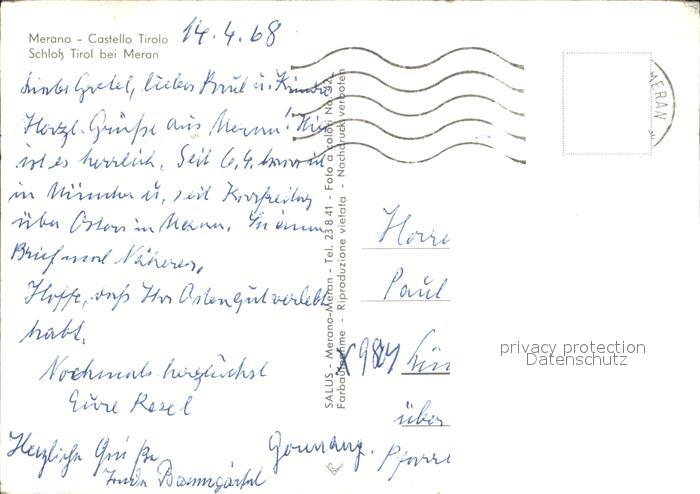 Merano - Castello Tirolo
Schloß Tirol bei Meran
14.4.68
Liebe Gretel, lieber Paul u. Kinder
Herzl. Grüße aus Meran! Hier
ist es herrlich. Seit 6.4. war ich
in München u. seit Karfreitag
über Ostern in Meran. In einem
Brief mal Näheres,
Hoffe, daß Ihr Ostern gut verlebt
habt.
Nochmals herzlichst
Eure Resel
Herzliche Grüße
Baumgärtel
SALUS - Merano-Meran - Tel. 23 8 41 - Foto a colori No.
Farbaufnahme - Riproduzione vietata - Nachdruck verboten
MERAN
Herrn
Paul
über
Pfarr
Germany.
privacy protection
Datenschutz